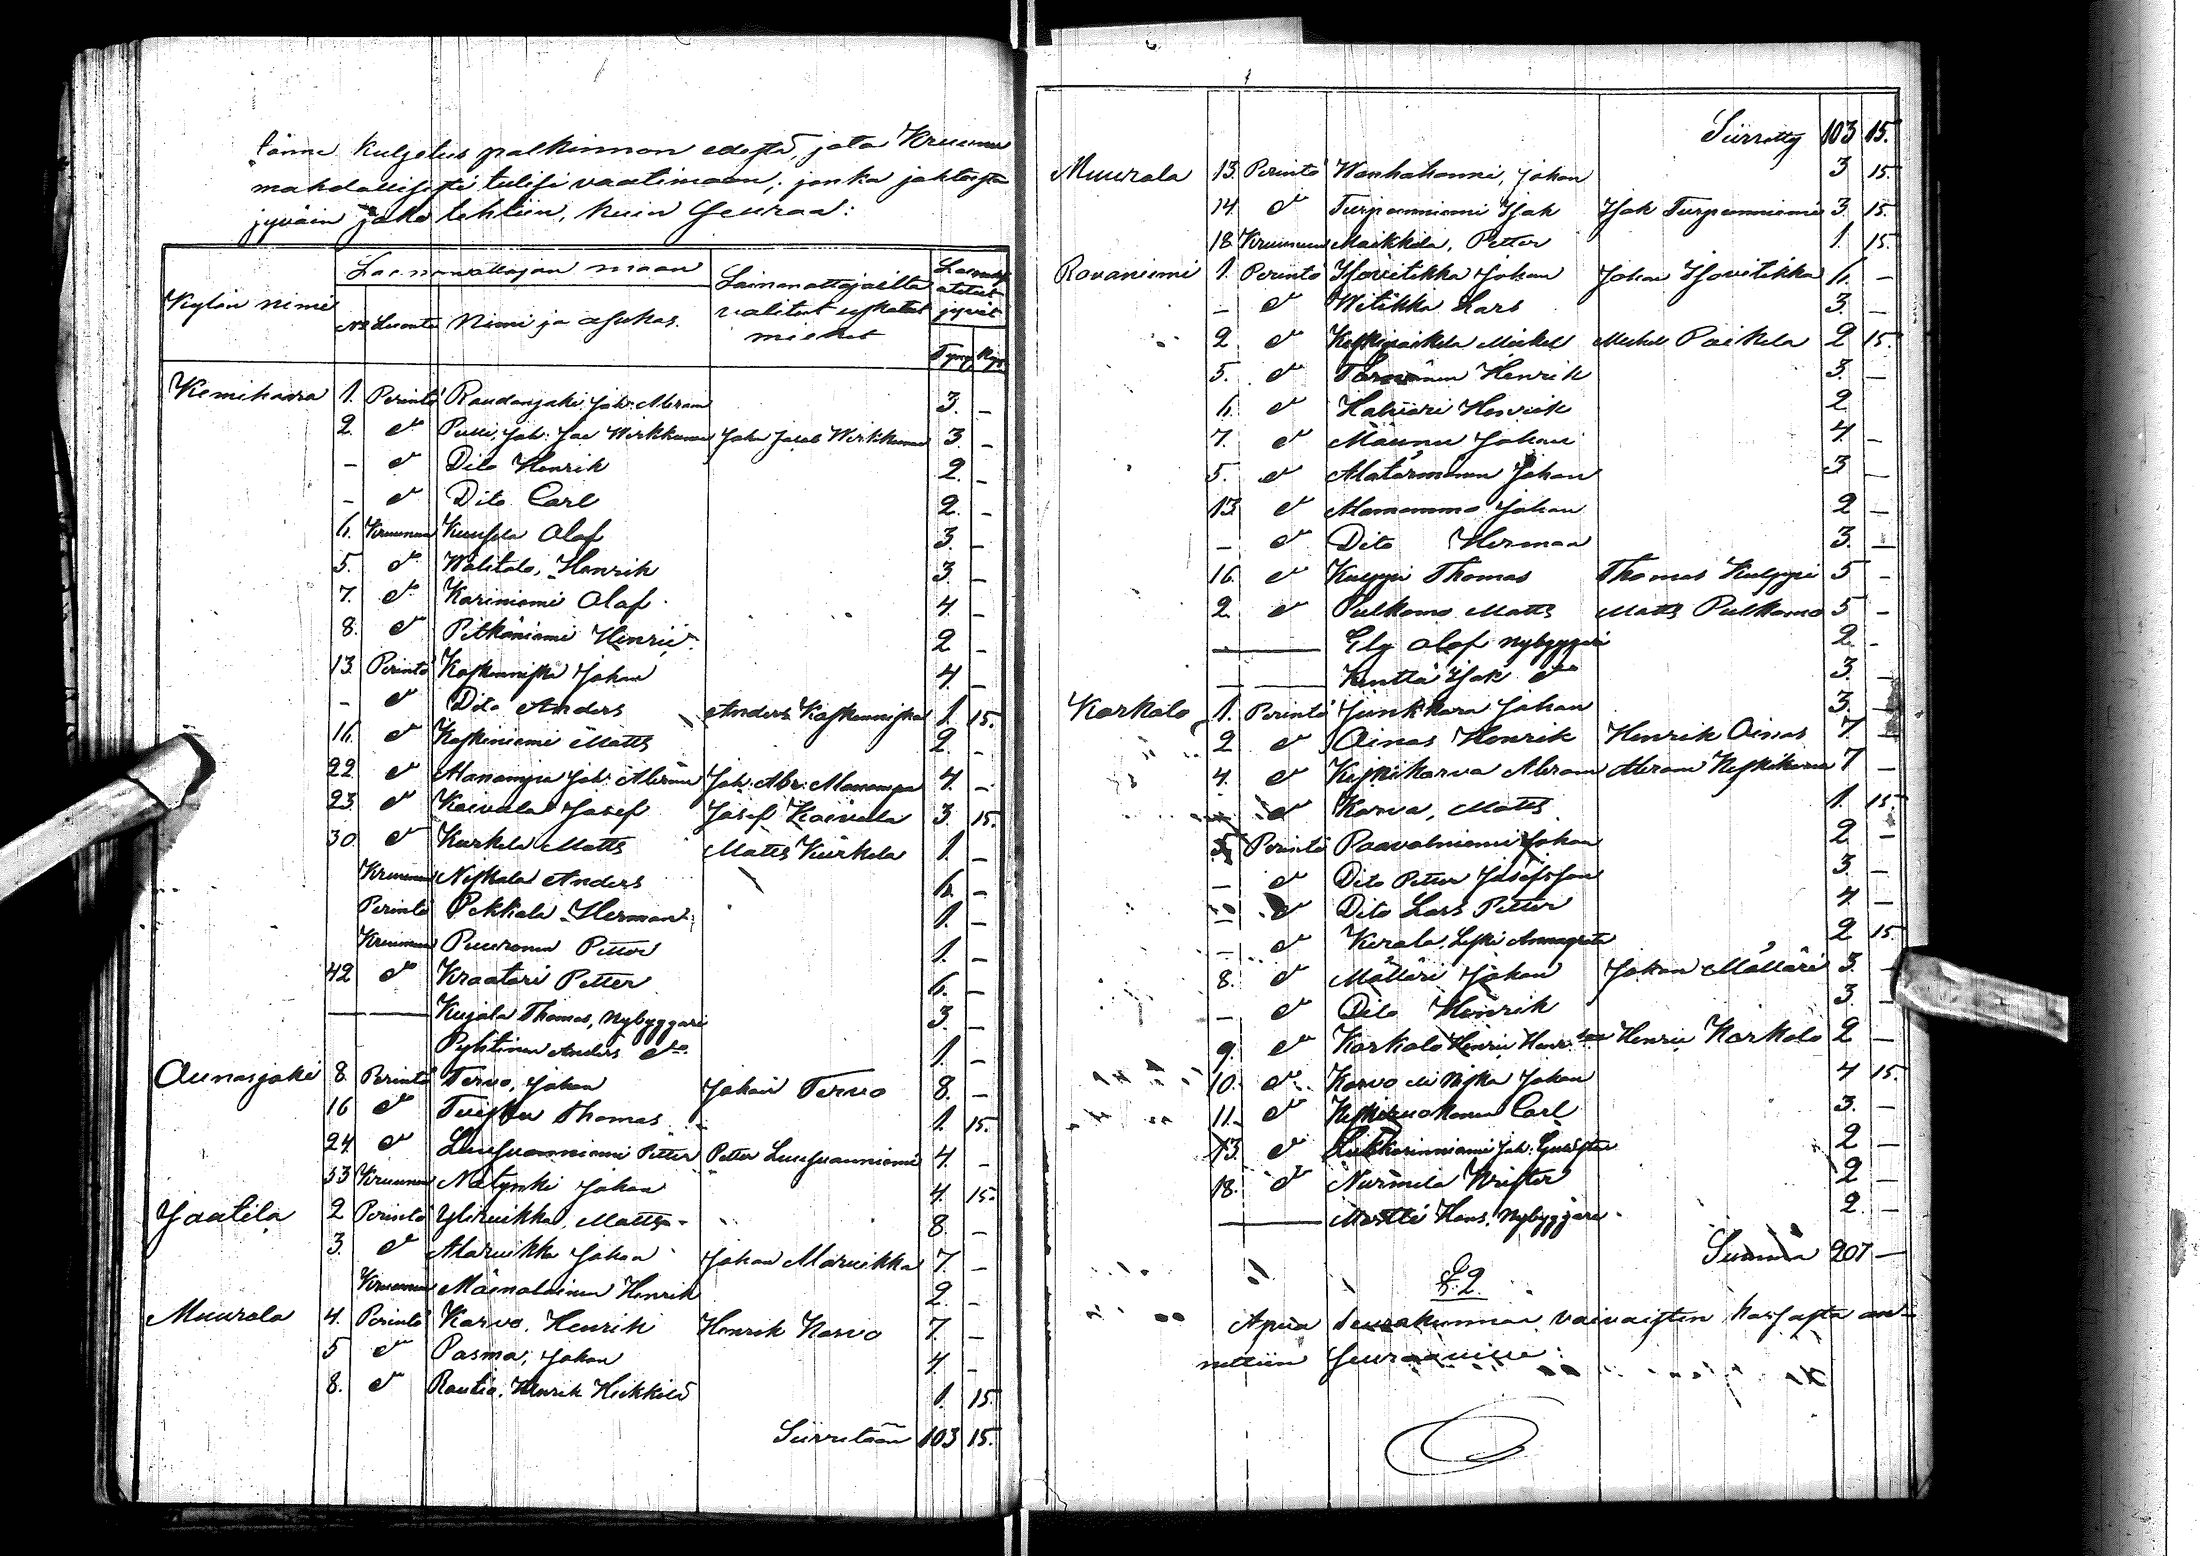 tänne kuljetus palkinnon edestä, jota Kruunu
mahdollisesti tulisi vaatimaan; jonka johdosta
jyväin jako tehtiin, kuin seuraa:
Kylän nimi
Lainanottajan maan
Lainanottajoilta valitut uskotut miehet
jyvät
No Luonto Nimi ja asukas.
Tynn. Kapp.
Kemihaara 1. Perintö Raudanjoki Joh: Abram 3. –
2. do Pulli, Joh: Jac Werkkunen Joh: Jacob Werkkunen 3. –
– do Dito Henrik 2. –
– do Dito Carl 2. –
6. Kruunun Kuusela Olof 3. –
5. do Walitalo, Henrik 3. –
7. do Kariniemi Olof 4. –
8. do Pitkäniemi Henric 2 –
13. Perintö Koskenniska Johan 4. –
– do Dito Anders Anders Koskenniska 1. 15.
16. do Koskiniemi Matts 2. –
22 do Alanampa Joh: Abram Joh: Abr: Alanampa 4. –
23 do Koivula Josef Josef Koivula 3. 15.
30 do Kurkela Matts Matts Kurkela 1. –
Kruunun Niskala Anders 6. –
Perintö Pekkala Herman 1. –
Kruunun Puuronen Petter 1. –
42 do Kraatari Petter 6. –
— — Kujala Thomas, Nybyggare 3. –
Pyhtinen Anders do 1. –
Ounasjoki 8. Perintö Tervo, Johan Johan Tervo 8. –
16 do Thomas 1. 15.
24 do Luusuanniemi Petter Petter Luusuanniemi 4. –
33 Kruunun Nätynki Johan 4. 15.
Jaatila 2 Perintö Yliruikka, Matts 8. –
3. do Alaruikka Johan Johan Alaruikka 7. –
Kruunun Mämmäläinen Henrik 2. –
Muurola 4. Perintö Karvo, Henrik Henrik Karvo 7. –
5 do Pasma, Johan 4. –
8. do Rautio, Henrik Heikkilä 1. 15.
Siirretään 103 15.
Siirretty 103 15.
Muurola 13. Perintö Wanhahanni, Johan 3 15.
14. do Turpeenniemi Isak Isak Turpeenniemi 3. 15.
18 Kruunun Maikkola, Petter 1. 15.
Rovaniemi 1. Perintö Isovitikka Johan Johan Isovitikka 6. –
– do Witikka Lars 3. –
2 do Keskipaikela Mickel Mickel Paikela 2 15.
5. do Törmänen Henrik 3. –
6. do Halvari Henrik 2
7. do Määnu Johan 4. –
5. do Alatörmänen Johan 3 –
13 do Alamommo Johan 2 –
– do Dito Herman 3. –
16. do Kulppi Thomas Thomas Kulppi 5 –
2. do Pulkamo Matts Matts Pulkamo 5 –
— Ely Olof nybyggare 2. –
— — Kenttä Isak do 3. –
Korkalo 1. Perintö Junkkara Johan 3. –
2 do Oinas Henrik Henrik Oinas 7. –
4. do Keskikarva Abram Abram Keskikarva 7 –
– do Karva, Matts 1. 15.
5 Perintö Paavalniemi Johan 2 –
– do Dito Petter Josefsson 3. –
– do Dito Lars Petter 4. –
– do Kerola, Leski Annagreta 2 15.
8. do Mölläri Johan Johan Mölläri 3. –
– do Dito Henrik 3. –
9. do Korkalo Henric Henr:son Henric Korkalo 2 –
10. do Karvo eli Niska Johan 4 15.
11. do Carl 3. –
13. do Lukkarinniemi Joh: 2 –
18. do Nurmela Krister 2 –
— Hans, Nybyggare 2. –
Summa 207 –
§.2.
Apua seurakunnan vaivaisten kassasta an-
nettiin seuraaville: